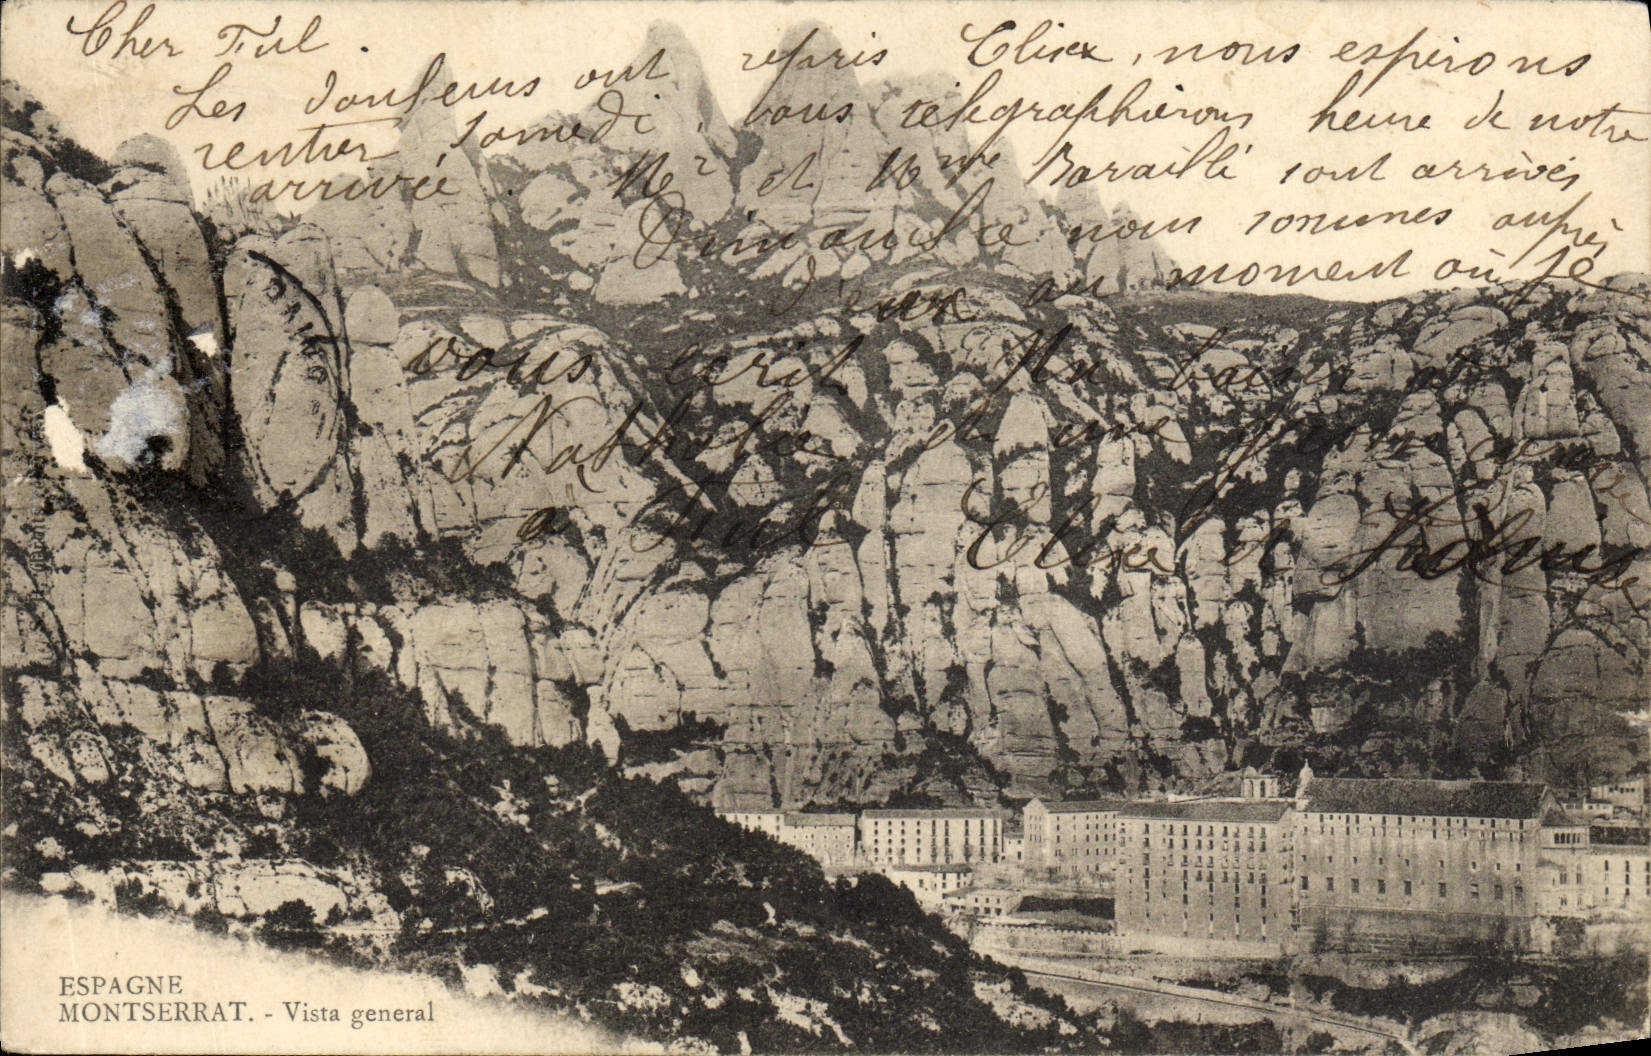 Cher Tiul.
Les douleurs ont repris Elise, nous espérons
rentrer samedi, vous télégraphierons heure de notre
arrivée. Mr et Mme Baraillé sont arrivés
Dimanche nous sommes auprès
d'eux au moment où je
vous écrit Un baiser à
Nathalie et une
à Tiul Elise et
ESPAGNE
MONTSERRAT. - Vista general